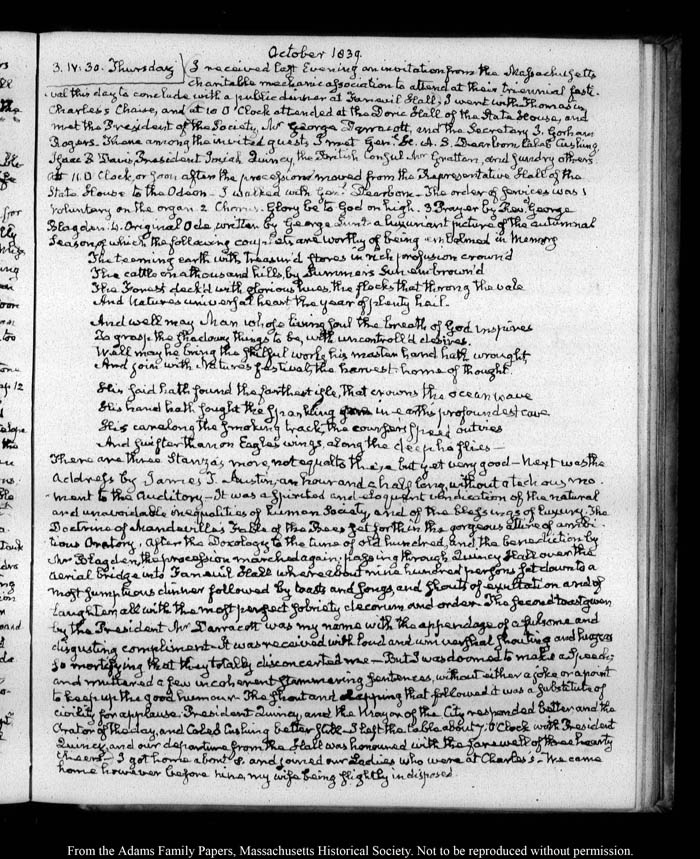 October 1839.
3. IV: 30. Thursday } I received last Evening an invitation from the Massachusetts
charitable mechanic association to attend at their triennial festi-
val this day to conclude with a public dinner at Faneuil Hall; I went with Thomas in
Charles's Chaise, and at 10 O'Clock attended at the Doric Hall of the State House, and
met the President of the Society, Mr George Darracott, and the Secretary J. Gorham
Rogers. Those among the invited guests I met Gen.l H. A. S. Dearborn Caleb Cushing,
Isaac B Davis, President Josiah Quincy, the British Consul Mr Grattan, and sundry others
At 11. O Clock, or soon after the procession moved from the Representative Hall of the
State House to the Odeon – I walked with Gen.l Dearborn – The order of services was 1
Voluntary on the organ 2 Chorus. Glory be to God on high. 3 Prayer by Rev. George
Blagden. 4. Original Ode, written by George Lunt – a luxuriant picture of the autumnal
Season, of which the following couplets are worthy of being embalmed in Memory
The teeming earth with treasur'd stores in rich profusion crown'd
The cattle on a thousand hills, by Summer's Sun embrown'd
The Forest deck'd with glorious hues, the flocks that throng the vale
And Nature's universal heart the year of plenty hail.
And well may Man whose living soul the breath of God inspires
To grasp the shadowy things to be, with uncontroll'd desires.
Well may he bring the skilful works his master hand hath wrought,
And join with Nature's festival, the harvest-home of thought.
His said hath found the farthest isle, That crowns the ocean wave
His hand hath sought the Sparkling gem in earth's profoundest cave
His car along the smoking track, the courser's speed outvies
And swifter than on Eagles wings, along the deep he flies –
There are three Stanza's more, not equal to these, but yet very good – Next was the
Address by James T. Austin, an hour and a half long, without a tedious mo-
ment to the Auditory – It was a spirited and eloquent vindication of the natural
and unavoidable inequalities of human Society, and of the blessings of luxury. The
Doctrine of Mandeville's Fable of the Bees set forth in the gorgeous attire of ambi-
tious Oratory. After the Doxology to the tune of old hundred, and the benediction by
Mr Blagden, the procession marched again, passing through Quincy Hall over the
aerial bridge into Faneuil Hall where about nine hundred persons sat down to a
most sumptuous dinner followed by toasts and songs and shouts of exultation and of
laughter, all with the most perfect sobriety decorum and order. The second toast given
by the President Mr Darracott was my name with the appendage of a fulsome and
disgusting compliment. It was received with loud and universal shouting and huzzas
so mortifying that they totally disconcerted me – But I was doomed to make a Speech
and muttered a few incoherent stammering sentences, without either a joke or a point
to keep up the good humour – The shout and clapping that followed it was a substitute of
civility for applause. President Quincy, and the Mayor of the City responded better and the
Orator of the day, and Caleb Cushing better still – I left the table about 7. O'Clock with President
Quincy, and our departure from the Hall was honoured with the farewell of three hearty
cheers – I got home about 8. and joined our Ladies who were at Charles's – We came
home however before nine, my wife being slightly indisposed
From the Adams Family Papers, Massachusetts Historical Society. Not to be reproduced without permission.